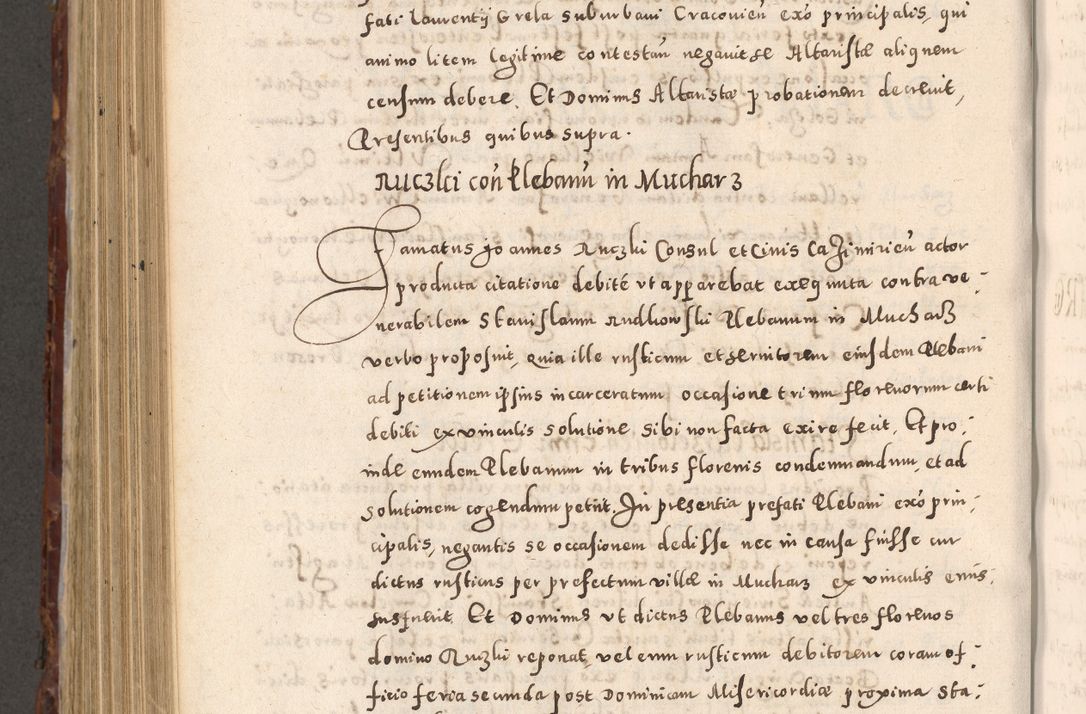 fati Laurentij Grela suburbani Cracovien̄ exo principalis, qui
animo litem legitime contestan̄ negavit se Altaristæ aliquem
censum debere. Et Dominus Altaristæ probationem decrevit,
Presentibus quibus supra.
Ruczki con̄ Plebanū in Mucharz
Famatus Joannes Ruczki Consul et Civis Cazimirieū actor
producta citatione debitè ut apparebat exequuta contra ve-
nerabilem Stanislaum Rudkowski Plebanum in Mucharz
verbo proposuit, quia ille rusticum et servitorem eiusdem Plebani
ad petitionem ipsius incarceratum occasione trium florenorum certi
debiti ex vinculis solutione sibi non facta exire fecit. Et pro-
inde eundem Plebanum in tribus florenis condemnandum, et ad
solutionem cogendum petiit. In presentia prefati Plebani exo prin-
cipalis, negantis se occasionem dedisse nec in causa fuisse cur
dictus rusticus per prefectum villæ in Mucharz ex vinculis emis-
sus fuerit. Et Dominus ut dictus Plebanus vel tres florenos
domino Ruczki reponat, vel eum rusticum debitorem coram of-
ficio feria secunda post Dominicam Misericordiæ proxima sta-